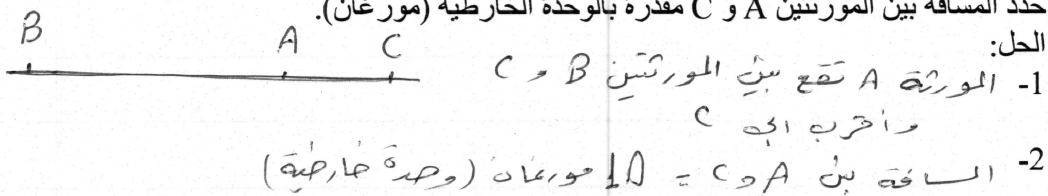 حدد المسافة بين المورثتين A و C مقدرة بالوحدة الخارطية (مورغان).
الحل:
B A C
1- المورثة A تقع بين المورثتين B و C
وأقرب إلى C
2- المسافة بين A و C = 10 مورغان (وحدة خارطية)